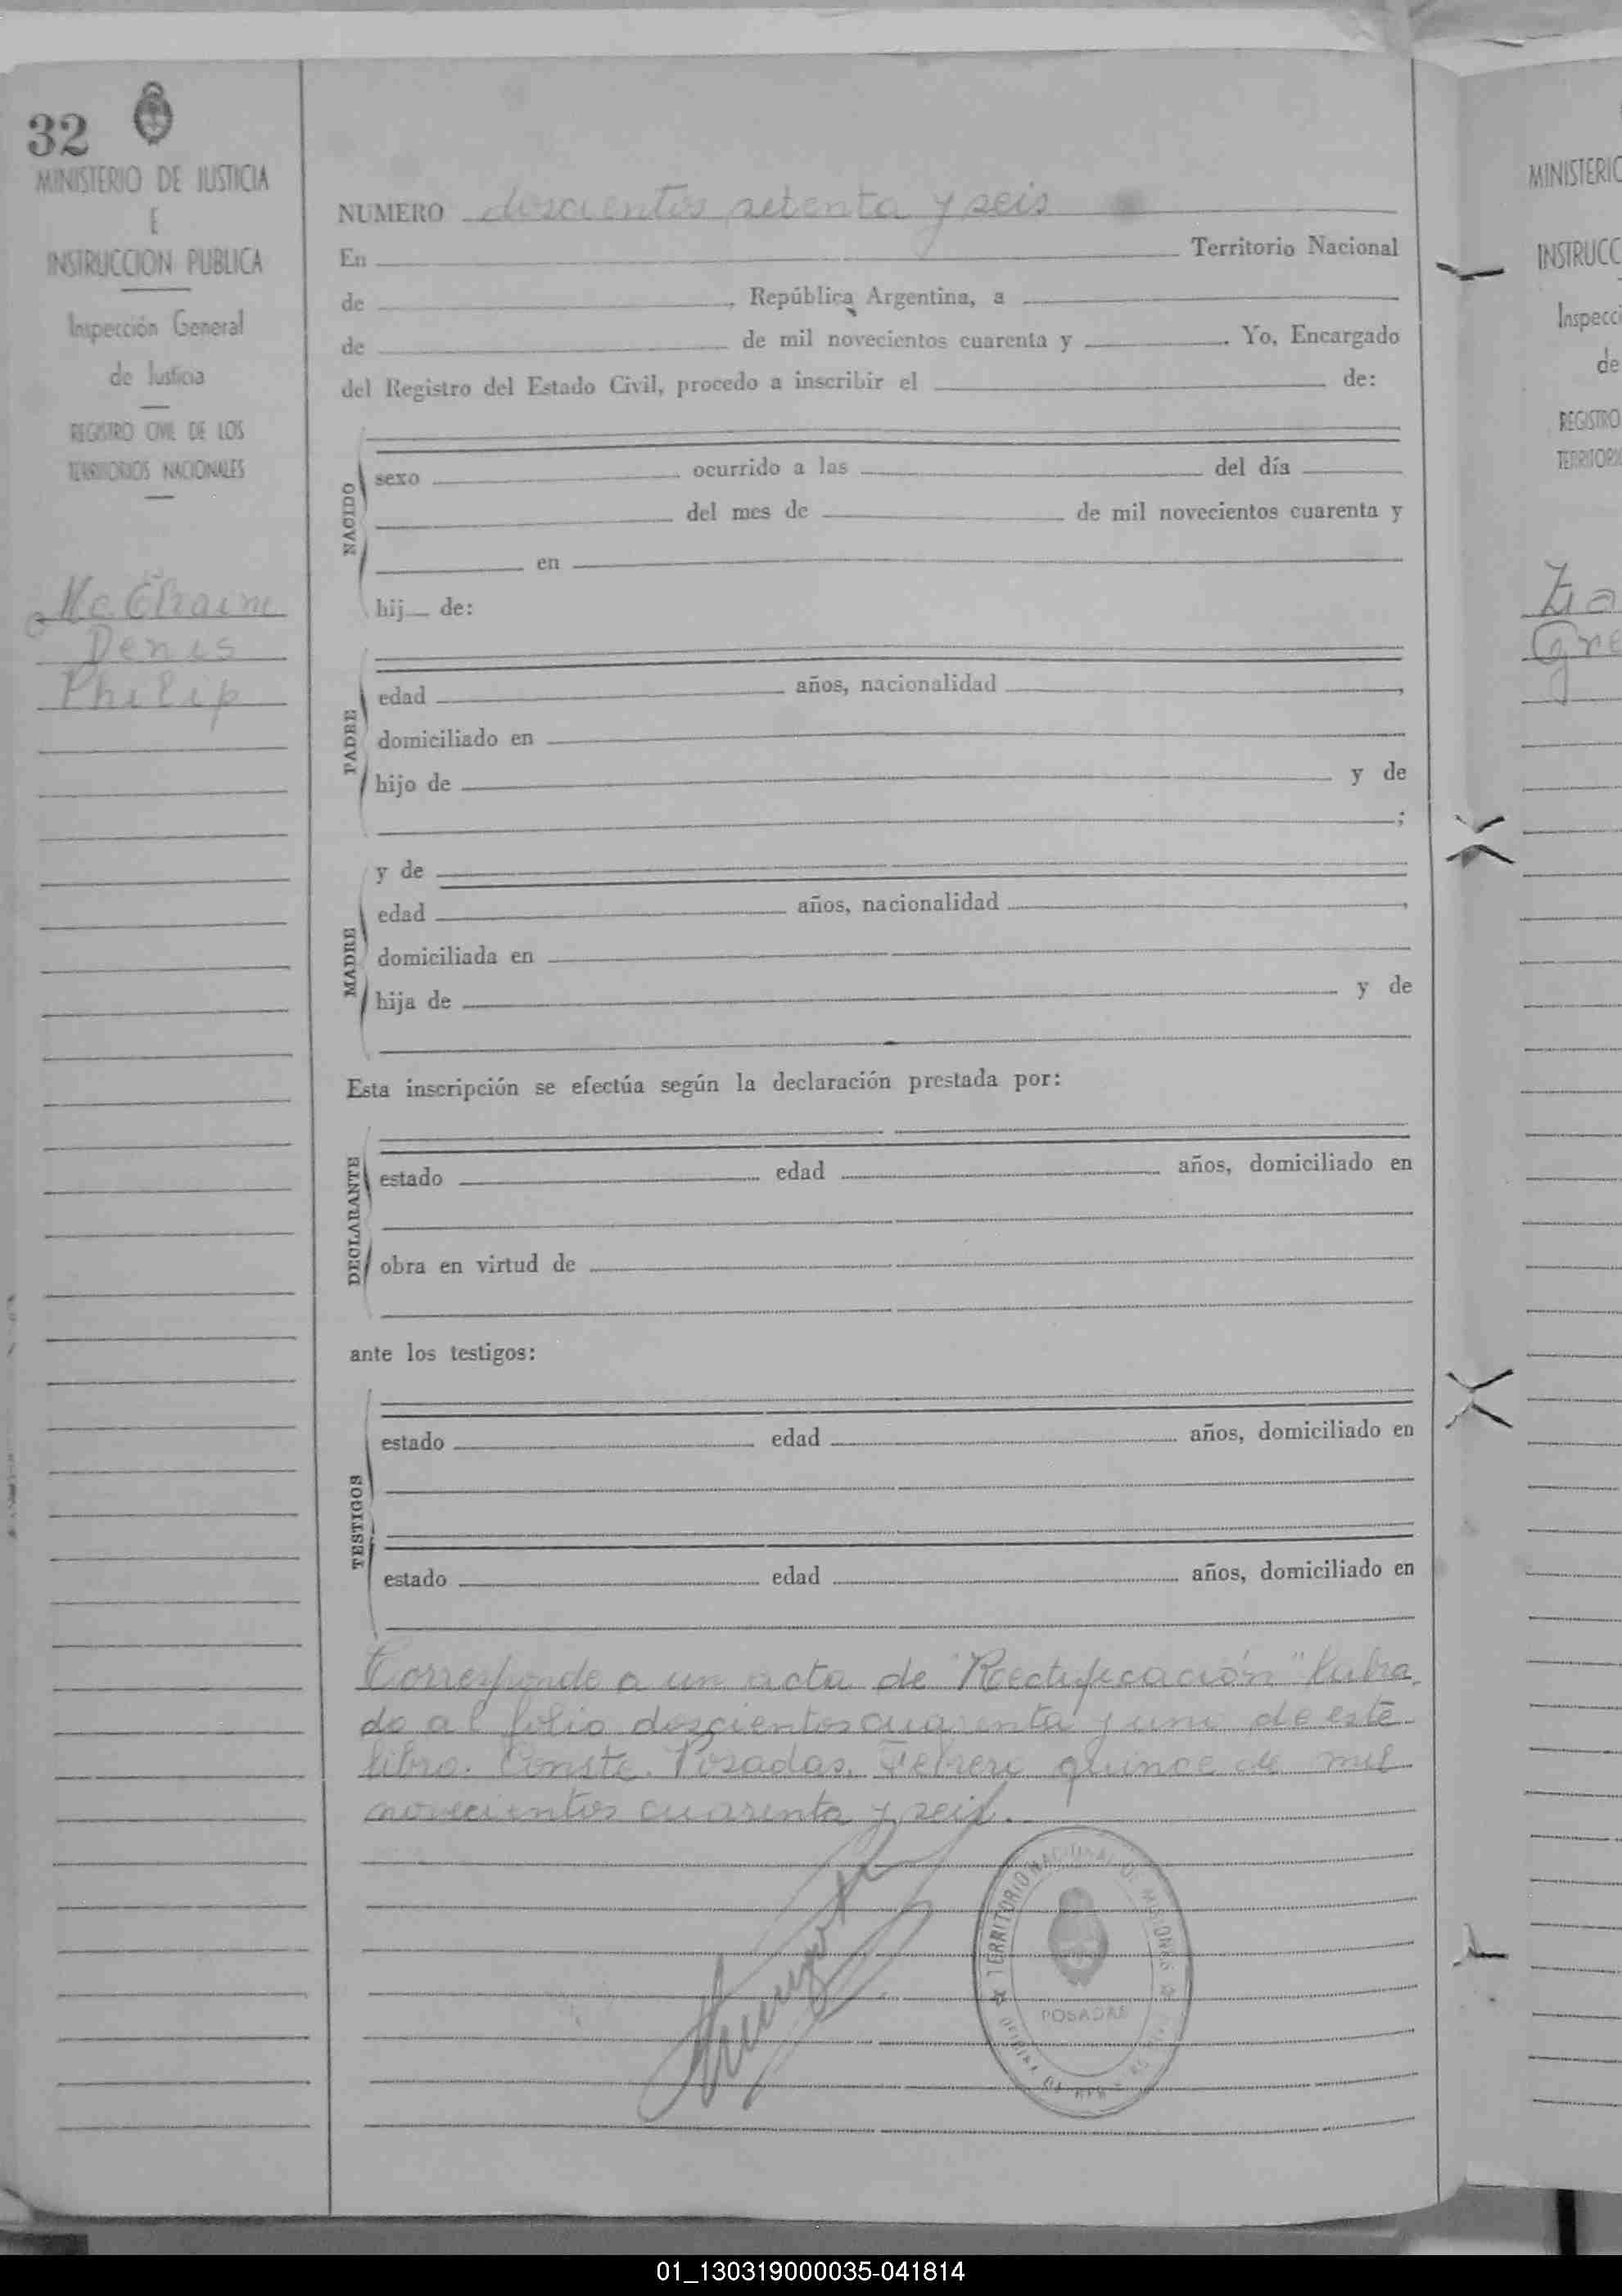 32
MINISTERIO DE JUSTICIA
E
INSTRUCCION PUBLICA
Inspección General
de Justicia
REGISTRO CIVIL DE LOS
TERRITORIOS NACIONALES
Denis
Philip
NUMERO doscientos setenta y seis
En Territorio Nacional
de , República Argentina, a
de de mil novecientos cuarenta y . Yo, Encargado
del Registro del Estado Civil, procedo a inscribir el de:
NACIDO
sexo ocurrido a las del día
del mes de de mil novecientos cuarenta y
en
hij de:
PADRE
edad años, nacionalidad ,
domiciliado en
hijo de y de
;
MADRE
y de
edad años, nacionalidad ,
domiciliada en
hija de y de
Esta inscripción se efectúa según la declaración prestada por:
DECLARANTE
estado edad años, domiciliado en
obra en virtud de
ante los testigos:
TESTIGOS
estado edad años, domiciliado en
estado edad años, domiciliado en
Corresponde a un acta de "Rectificación" labra
do al folio doscientos cuarenta y uno de este
libro. Conste. Posadas, Febrero quince de mil
novecientos cuarenta y seis.
TERRITORIO NACIONAL DE MISIONES
POSADAS
MINISTERIO
INSTRUCC
Inspecci
de
REGISTRO
TERRITORI
Gre
01_130319000035-041814